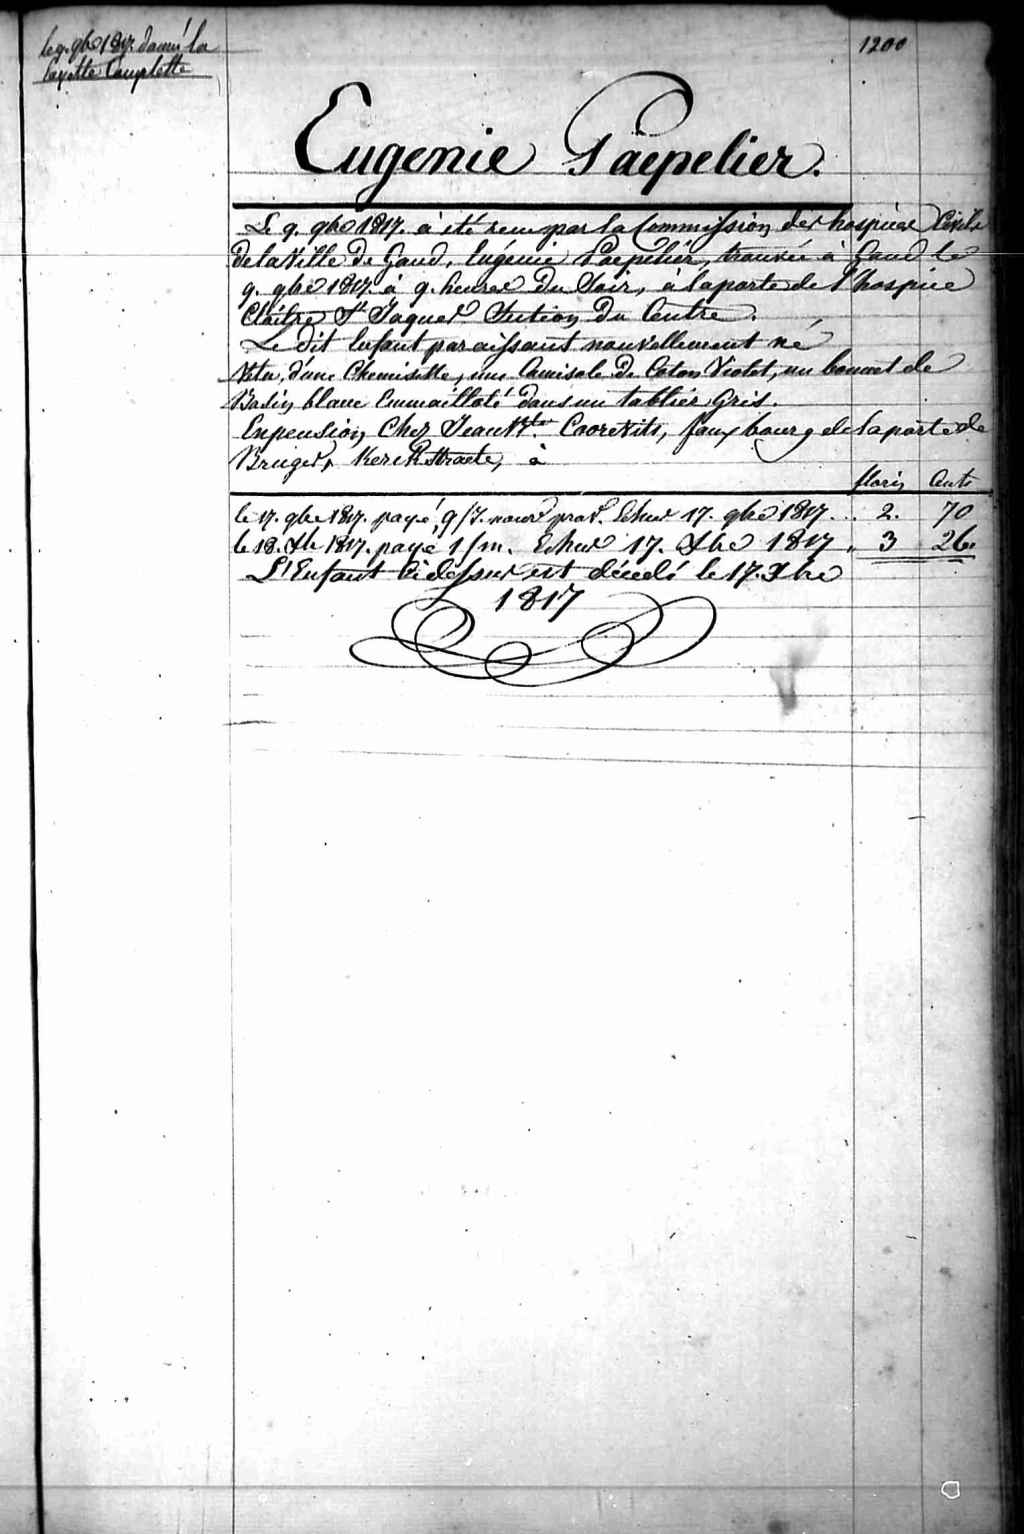 le 9. 9bre 1817. donné la
layette Complette
1200
Eugenie Paepelier.
Le 9. 9bre 1817. à été reçu par la Commission des hospices Civils
de la Ville de Gand, Eugénie Paepelier, trouvée à Gand le
9. 9bre 1817. à 9. heures du Soir, à la porte de l'hospice
Cloître St. Jaques Section du Centre.
Le dit Enfant paraissant nouvellement né
Vetu, d'une Chemisette, une Camisole de Coton Violet, un bonnet de
Basin blanc Emmailloté dans un tablier Gris.
En pension Chez Jean Bte. Coorevits, faux bourg de la porte de
Bruges, Kerckstraete, à
florin Cents
le 17. 9bre 1817. payé, 9/J. nour prov. Echus 17. 9bre 1817. .. 2. 70
le 18. Xbre 1817. payé 1/m. Echus 17. Xbre 1817 " 3 26.
L'Enfant Cidessus est décedé le 17. Xbre
1817